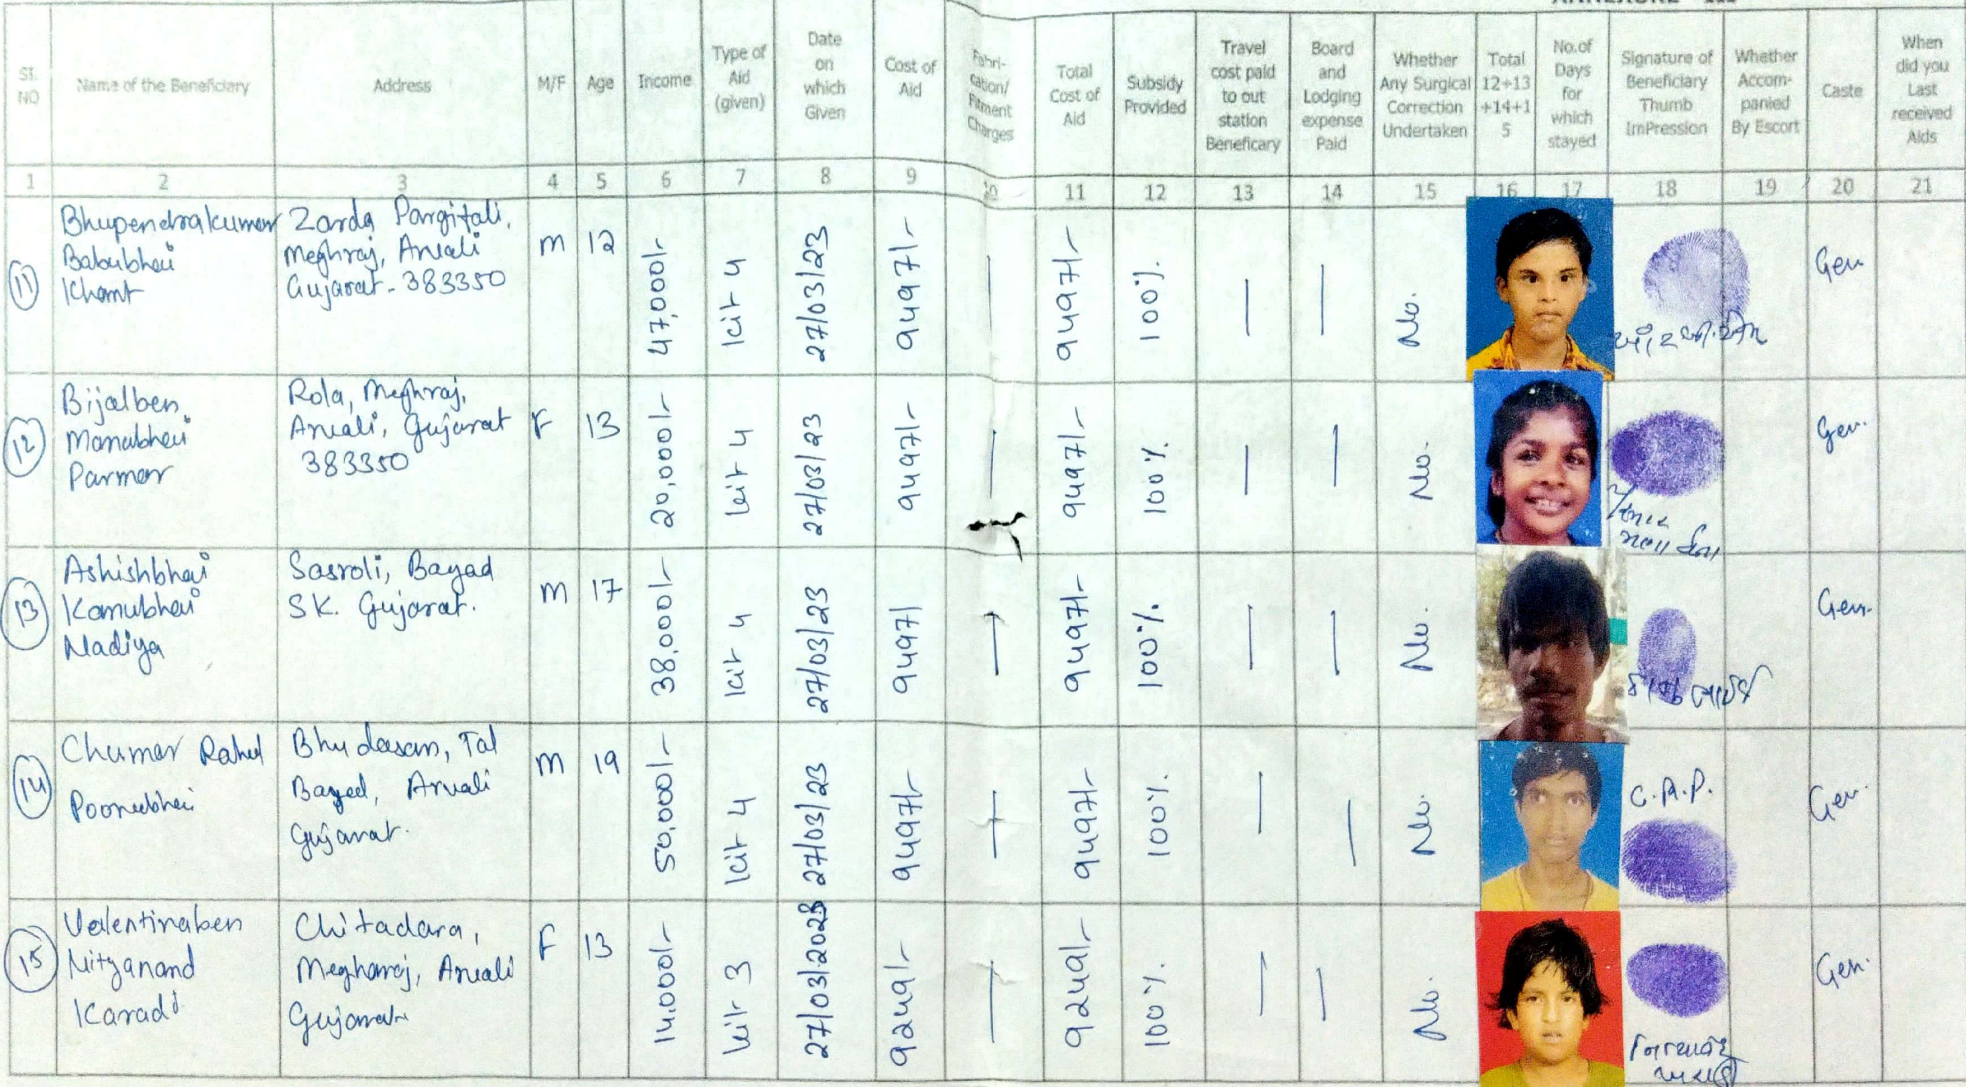 ANNEXURE - III
Sl. NO
Name of the Beneficiary
Address
M/F
Age
Income
Type of Aid (given)
Date on which Given
Cost of Aid
Fabri-cation/ Fitment Charges
Total Cost of Aid
Subsidy Provided
Travel cost paid to out station Beneficary
Board and Lodging expense Paid
Whether Any Surgical Correction Undertaken
Total 12+13 +14+1 5
No.of Days for which stayed
Signature of Beneficiary Thumb ImPression
Whether Accom-panied By Escort
Caste
When did you Last received Aids
1 2 3 4 5 6 7 8 9 10 11 12 13 14 15 16 17 18 19 20 21
11
Bhupendrakumar
Babubhai
Khant
Zarda Pargitali,
Meghraj, Arvali
Gujarat - 383350
M 12 47,000/- kit 4 27/03/23 9497/- — 9497/- 100% — — No. Gen
12
Bijalben
Manabhai
Parmar
Rola, Meghraj,
Arvali, Gujarat
383350
F 13 20,000/- kit 4 27/03/23 9497/- — 9497/- 100% — — No. Gen.
13
Ashishbhai
Kamubhai
Nadiya
Sasroli, Bayad
SK. Gujarat.
M 17 38,000/- kit 4 27/03/23 9497/ — 9497/- 100% — — No. Gen.
14
Chumar Rahul
Poonubhai
Bhudasan, Tal
Bayed, Arvali
Gujarat.
M 19 50,000/- kit 4 27/03/23 9497/- — 9497/- 100% — — No. C.R.P. Gen.
15
Valentinaben
Nityanand
Karadi
Chitadara,
Megharaj, Arvali
Gujarat
F 13 14,000/- kit 3 27/03/2023 9249/- — 9249/- 100% — — No. Gen.